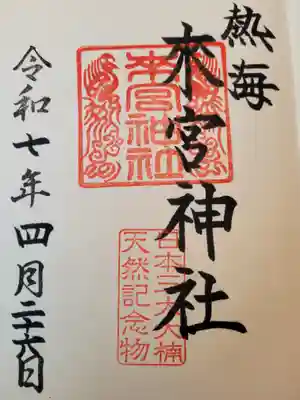 熱海
來宮神社
來宮神社
日本三大大楠
天然記念物
令和七年四月二十六日